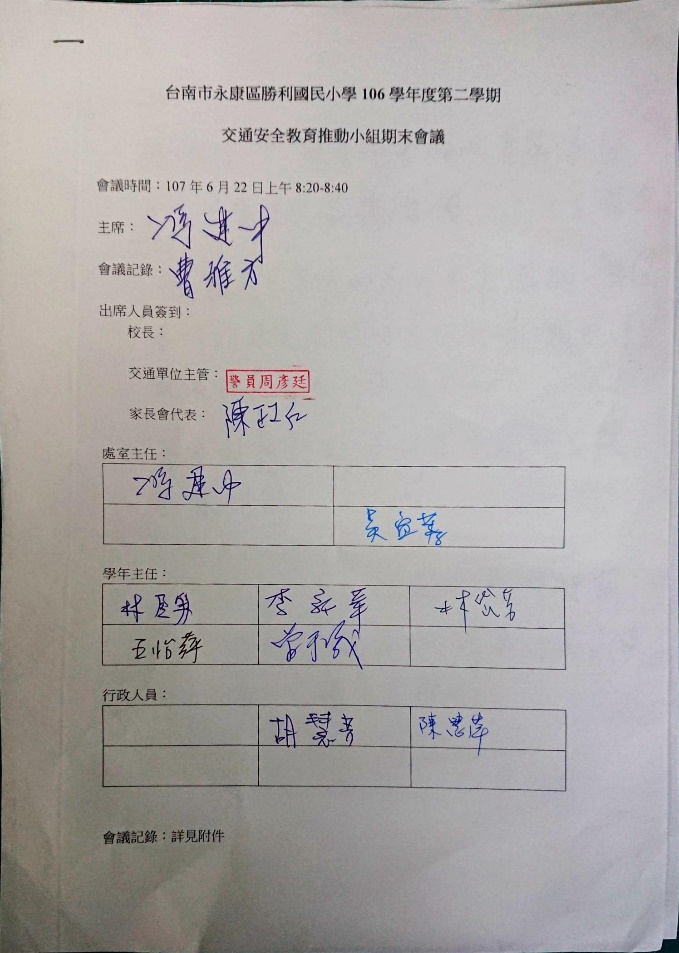 台南市永康區勝利國民小學 106 學年度第二學期
交通安全教育推動小組期末會議
會議時間：107 年 6 月 22 日上午 8:20-8:40
主席：馮進中
會議記錄：曹雅方
出席人員簽到：
校長：
交通單位主管：警員周彥廷
家長會代表：陳
處室主任：
馮進中
吳宜蓁
學年主任：
林 李 林
王怡萍 曾
行政人員：
胡慧芳 陳慧萍
會議記錄：詳見附件